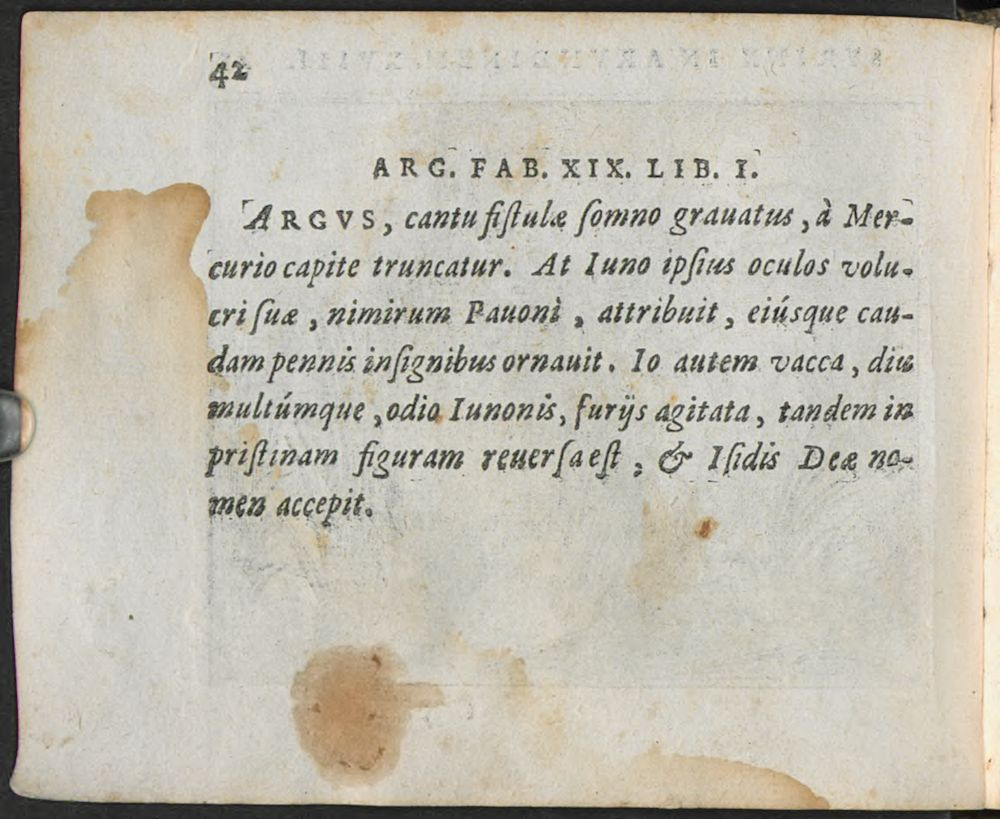 42
ARG. FAB. XIX. LIB. I.
ARGVS, cantu fiſtulæ ſomno grauatus, à Mer-
curio capite truncatur. At Iuno ipſius oculos volu-
cri ſuæ, nimirum Pauoni, attribuit, eiúsque cau-
dam pennis inſignibus ornauit. Io autem vacca, diu
multúmque, odio Iunonis, furijs agitata, tandem in
priſtinam figuram reuerſa eſt, & Iſidis Deæ no-
men accepit.